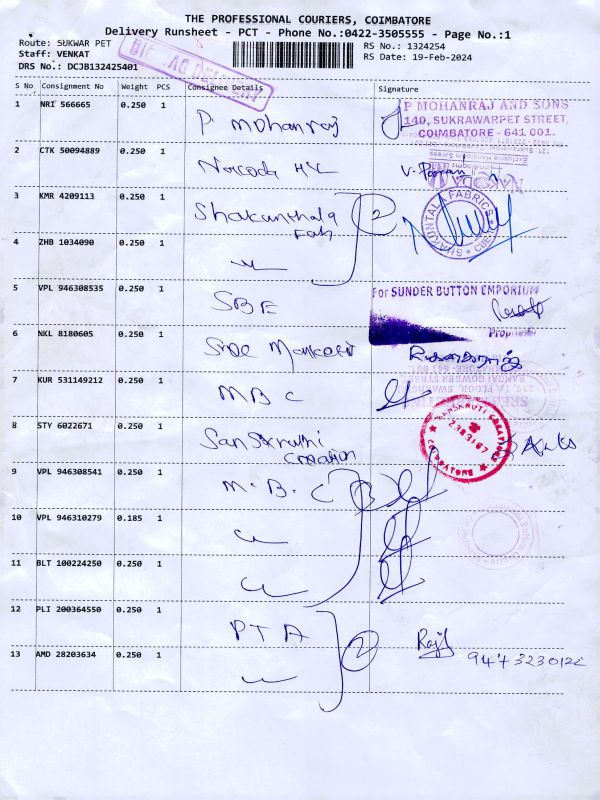 THE PROFESSIONAL COURIERS, COIMBATORE
Delivery Runsheet - PCT - Phone No.:0422-3505555 - Page No.:1
Route: SUKWAR PET
RS No.: 1324254
Staff: VENKAT
RS Date: 19-Feb-2024
DRS No.: DCJB132425401
S No Consignment No Weight PCS Consignee Details Signature
1 NRI 566665 0.250 1 P. Mohanraj
P MOHANRAJ AND SONS
140, SUKRAWARPET STREET,
COIMBATORE - 641 001.
2 CTK 50094889 0.250 1
3 KMR 4209113 0.250 1 Shakunthala Fab 2
SHAKUNTAL FABRICS CBE
4 ZHB 1034090 0.250 1
5 VPL 946308535 0.250 1 SBE
For SUNDER BUTTON EMPORIUM
6 NKL 8180605 0.250 1
7 KUR 531149212 0.250 1 MBC
8 STY 6022671 0.250 1 Sanskruthi Creation
SANSKRUTI CREATIONS COIMBATORE
9 VPL 946308541 0.250 1 M.B.C 3
10 VPL 946310279 0.185 1
11 BLT 100224250 0.250 1
12 PLI 200364550 0.250 1 PTA 2
13 AMD 28203634 0.250 1